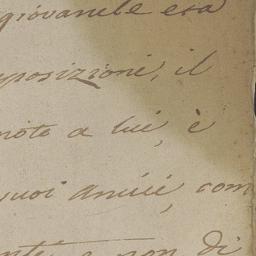 giovanile età
mposizioni, il
noto a lui, è
suoi amici, com
e non di